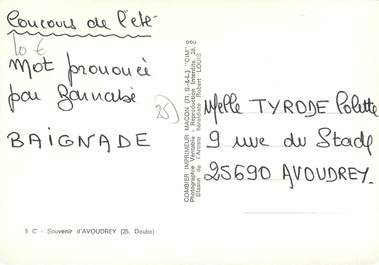 Concours de l'été
10 €
Mot prononcé
par Barnabé
BAIGNADE
25)
Melle TYRODE Colette
9 rue du Stade
25690 AVOUDREY.
COMBIER IMPRIMEUR MACON (71 S.-&-L.) "CIM"
Photographie Véritable - Reproduction Interdite
Blason de l'Artiste héraldiste Robert LOUIS
5 C - Souvenir d'AVOUDREY (25. Doubs)